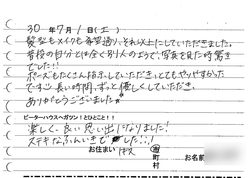 30年7月1日(土)
髪型もメイクも希望通り、それ以上にしていただきました。
普段の自分とは全く別人のようで、写真を見た時驚き
でした!!
ポーズもたくさん指示していただき、とてもやりやすかった
です☺長い時間、ずっと優しくしていただき、
ありがとうございました
ピーターハウスへガツン!ひとこと!!
楽しく、良い思い出になりました!
ステキなふんいきでした!
お住まい
市
町
村
お名前